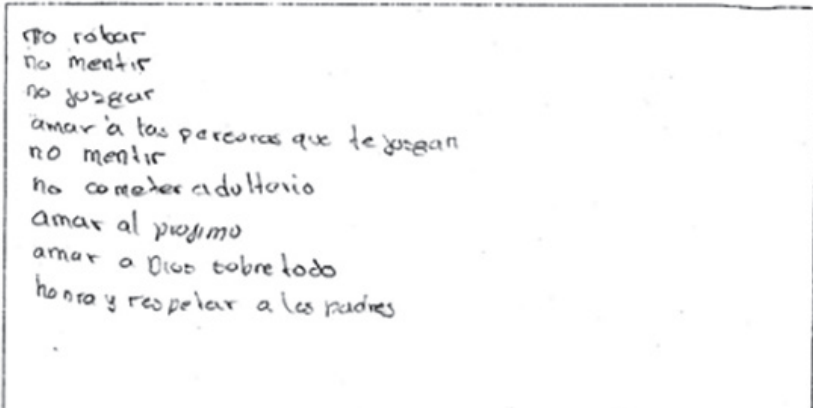 no robar
no mentir
no juzgar
amar a las personas que te juzgan
no mentir
no cometer adulterio
amar al projimo
amar a Dios sobre todo
honra y respetar a los padres